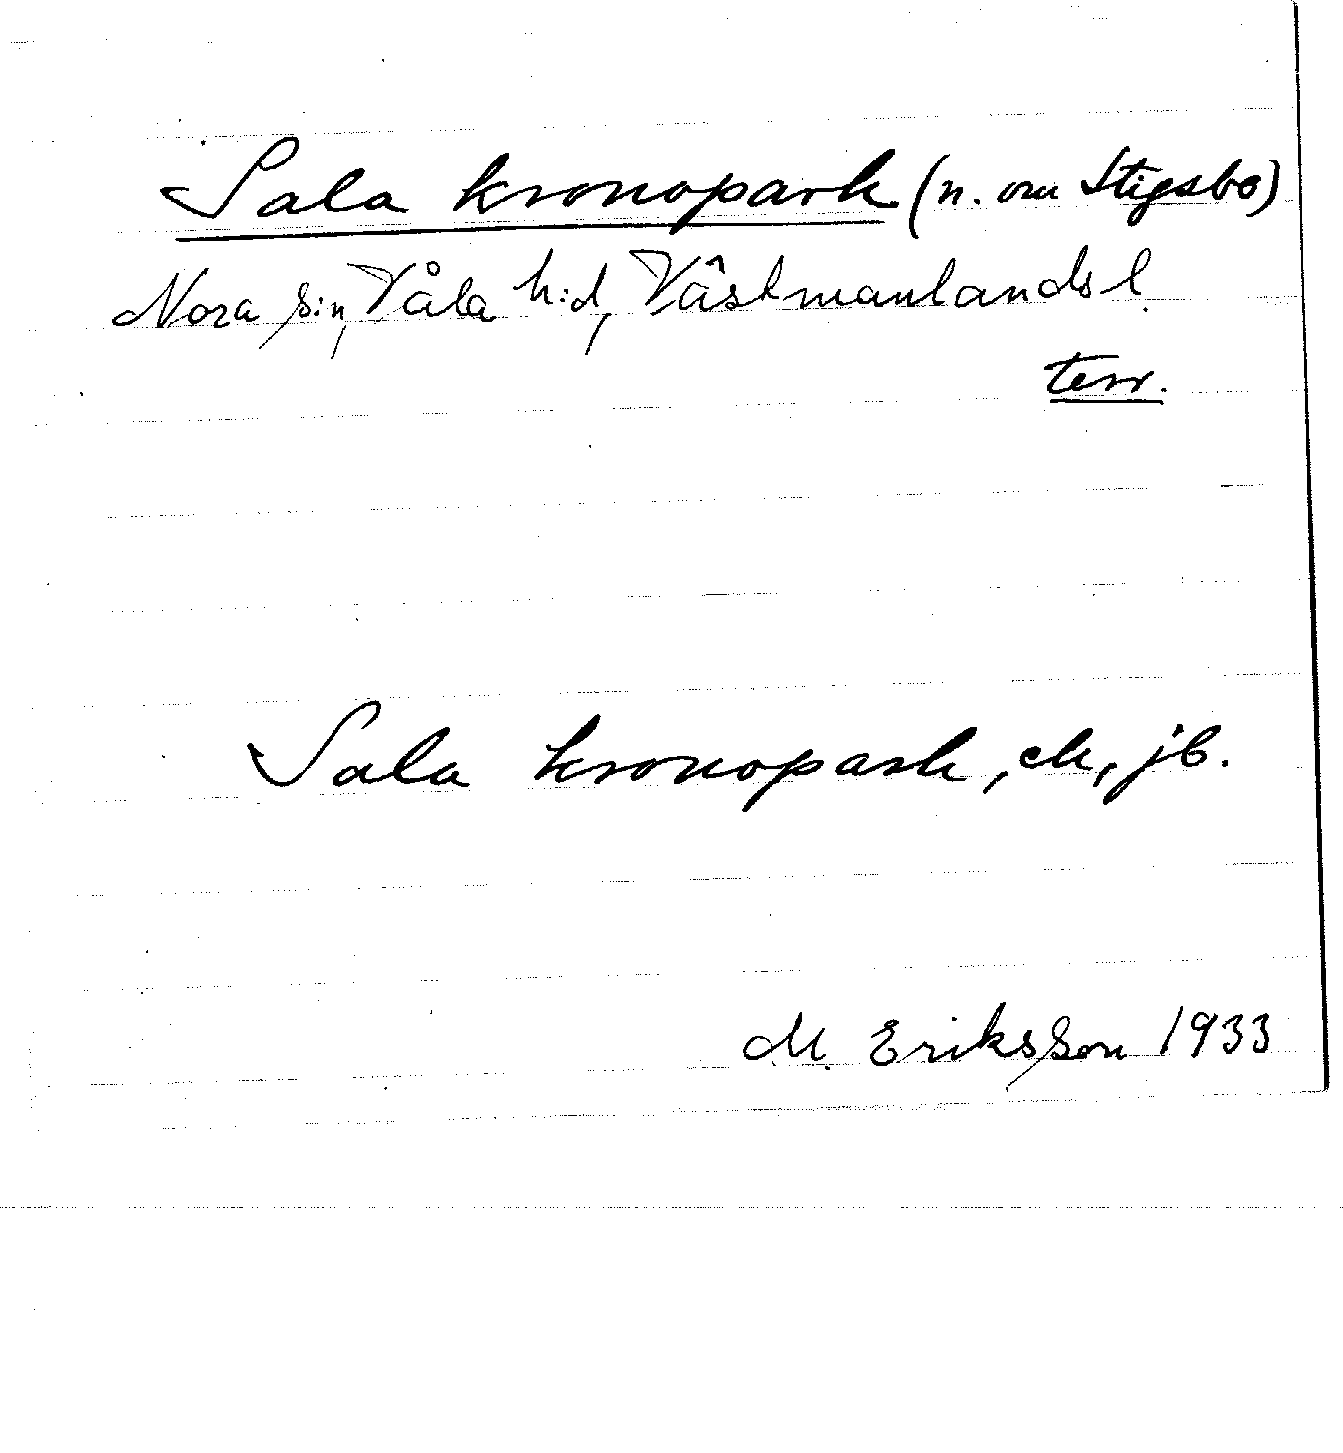 Sala kronopark (n. om Stigsbo)
Nora s:n, Våla h:d, Västmanlands l.
terr.
Sala kronopark, ek, jb.
M. Eriksson 1933